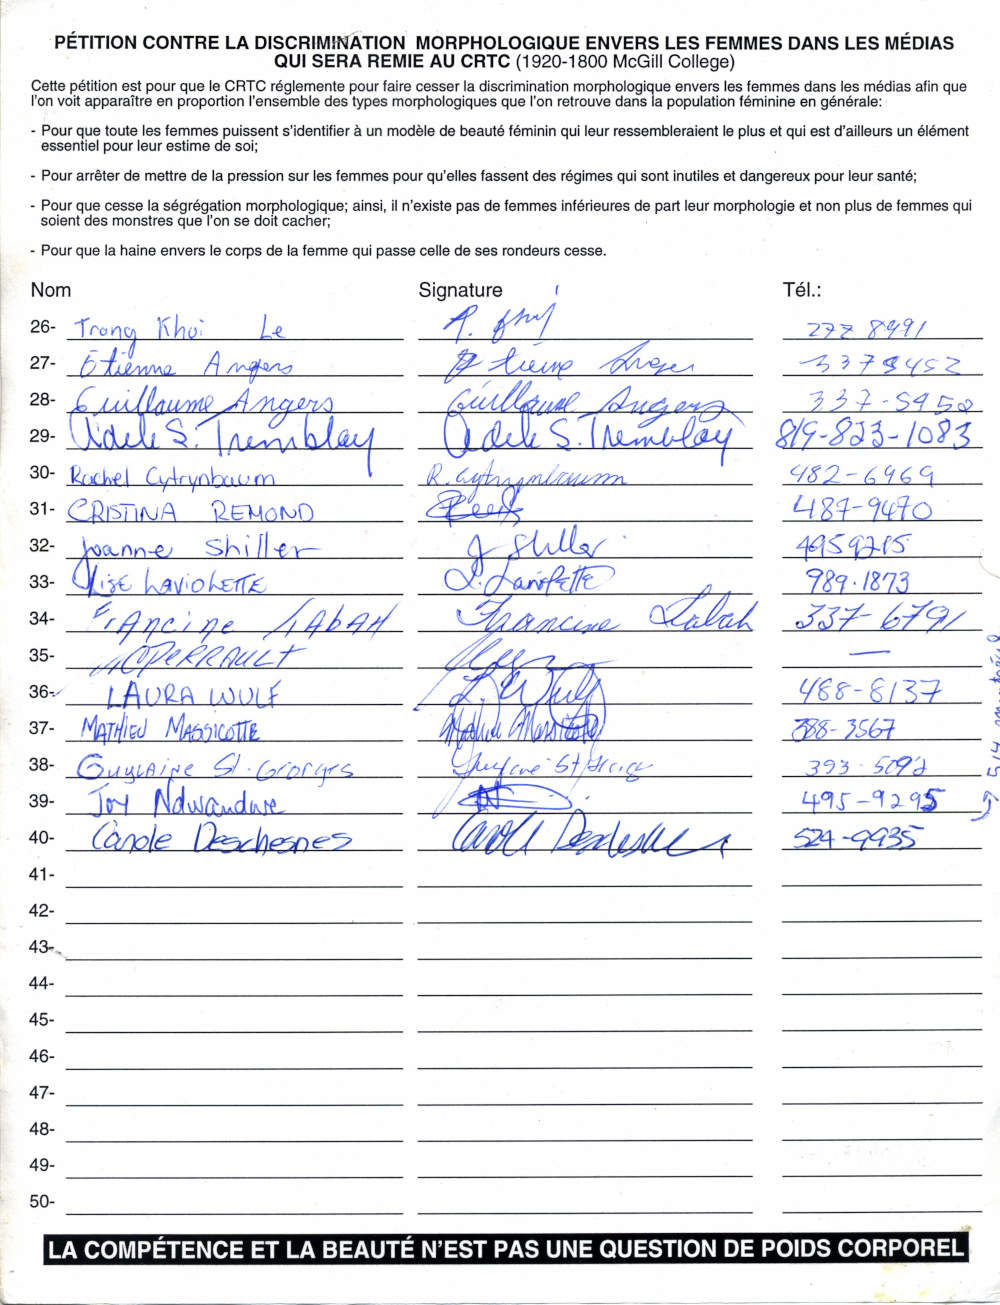 PÉTITION CONTRE LA DISCRIMINATION MORPHOLOGIQUE ENVERS LES FEMMES DANS LES MÉDIAS
QUI SERA REMIE AU CRTC (1920-1800 McGill College)
Cette pétition est pour que le CRTC réglemente pour faire cesser la discrimination morphologique envers les femmes dans les médias afin que
l'on voit apparaître en proportion l'ensemble des types morphologiques que l'on retrouve dans la population féminine en générale:
- Pour que toute les femmes puissent s'identifier à un modèle de beauté féminin qui leur ressembleraient le plus et qui est d'ailleurs un élément
essentiel pour leur estime de soi;
- Pour arrêter de mettre de la pression sur les femmes pour qu'elles fassent des régimes qui sont inutiles et dangereux pour leur santé;
- Pour que cesse la ségrégation morphologique; ainsi, il n'existe pas de femmes inférieures de part leur morphologie et non plus de femmes qui
soient des monstres que l'on se doit cacher;
- Pour que la haine envers le corps de la femme qui passe celle de ses rondeurs cesse.
Nom Signature Tél.:
26- Trong Khoi Le 272 8491
27- Étienne Angers Étienne Angers 3379452
28- Guillaume Angers Guillaume Angers 337-9452
29- Adele S. Tremblay Adele S. Tremblay 819-823-1083
30- Rachel Cytrynbaum R. Cytrynbaum 482-6969
31- CRISTINA REMOND 487-9470
32- Joanne Shiller J Shiller 4959215
33- Lise LaVioLETTE L. Laviolette 989.1873
34- Francine LABAH Francine Labah 337-6791
35- PERRAULT —
36- LAURA WULF L. Wulf 488-8137
37- MATHIEU MASSICOTTE Mathieu Massicotte 388-3567
38- Guylaine St-Georges Guylaine St-Georges 393-5092
39- Joy Ndwandwe 495-9295
40- Carole Deschesnes Carole Deschesnes 524-9935
41-
42-
43-
44-
45-
46-
47-
48-
49-
50-
LA COMPÉTENCE ET LA BEAUTÉ N'EST PAS UNE QUESTION DE POIDS CORPOREL